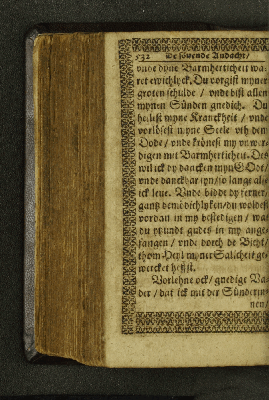 532 De sövende Andacht/
vnde dyne Barmherticheit wa-
ret ewichlyck. Du vorgifst mynen
groten schulde / vnde bist allen
mynen Sünden gnedich. Du
heilest myne Kranckheit / vnde
vorlösest myne Seele vth dem
Dode / vnde krönest my vnwer-
digen mit Barmherticheit. Des
wil ick dy dancken myn Godt /
vnde danckbar syn / so lange alse
ick leue. Vnde bidde dy ferner
gantz demödichlyken / du woldest
vordan in my bestedigen / wat
du ytzundt gudes in my ange-
fangen / vnde dorch de Bicht /
thom Heyl myner Salicheit ge-
wercket heffst.
Vorlehne ock / gnedige Va-
der / dat ick mit der Sünderin-
nen